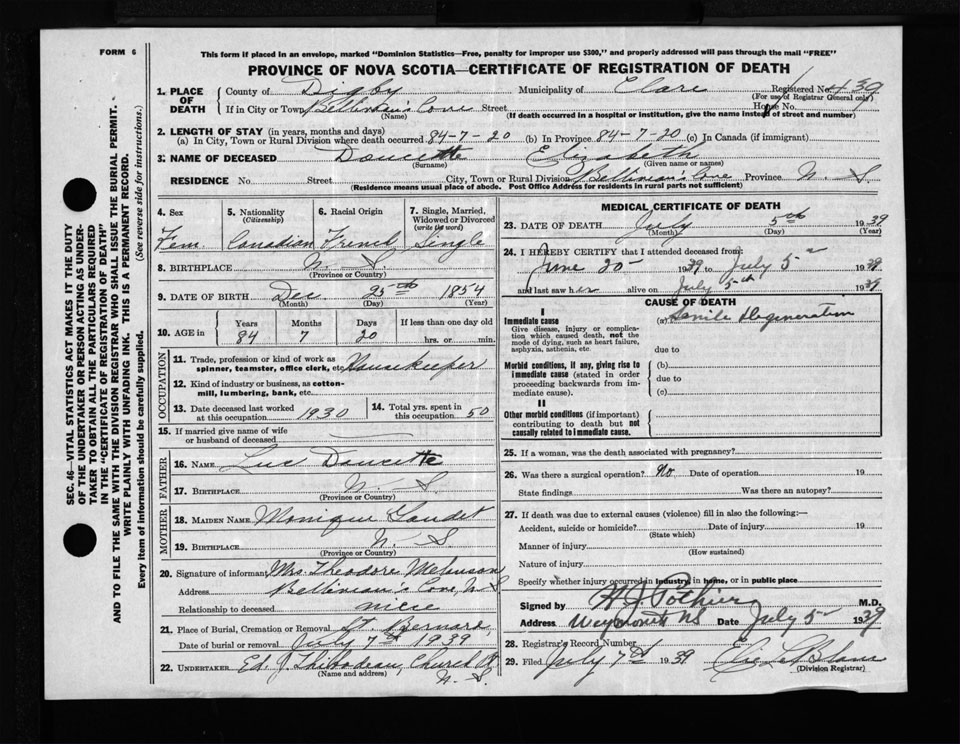 FORM 6
This form if placed in an envelope, marked "Dominion Statistics—Free, penalty for improper use $300," and properly addressed will pass through the mail "FREE"
PROVINCE OF NOVA SCOTIA—CERTIFICATE OF REGISTRATION OF DEATH
SEC. 46—VITAL STATISTICS ACT MAKES IT THE DUTY
OF THE UNDERTAKER OR PERSON ACTING AS UNDER-
TAKER TO OBTAIN ALL THE PARTICULARS REQUIRED
IN THE "CERTIFICATE OF REGISTRATION OF DEATH"
AND TO FILE THE SAME WITH THE DIVISION REGISTRAR WHO SHALL ISSUE THE BURIAL PERMIT.
WRITE PLAINLY WITH UNFADING INK. THIS IS A PERMANENT RECORD.
Every item of information should be carefully supplied. (See reverse side for instructions.)
1. PLACE OF DEATH County of Digby Municipality of Clare Registered No. 439
(For use of Registrar General only)
If in City or Town Belliveau's Cove Street House No.
(Name) (If death occurred in a hospital or institution, give the name instead of street and number)
2. LENGTH OF STAY (in years, months and days)
(a) In City, Town or Rural Division where death occurred 84-7-20 (b) In Province 84-7-20 (c) In Canada (if immigrant)
3. NAME OF DECEASED Doucette Elizabeth
(Surname) (Given name or names)
RESIDENCE No. Street City, Town or Rural Division Belliveau's Cove Province N. S
(Residence means usual place of abode. Post Office Address for residents in rural parts not sufficient)
4. Sex 5. Nationality (Citizenship) 6. Racial Origin 7. Single, Married, Widowed or Divorced (write the word)
Fem. Canadian French Single
8. BIRTHPLACE N. S.
(Province or Country)
9. DATE OF BIRTH Dec 25th 1854
(Month) (Day) (Year)
10. AGE in Years Months Days If less than one day old
84 7 20 hrs. or min.
OCCUPATION
11. Trade, profession or kind of work as spinner, teamster, office clerk, etc. Housekeeper
12. Kind of industry or business, as cotton-mill, lumbering, bank, etc.
13. Date deceased last worked at this occupation 1930 14. Total yrs. spent in this occupation 50
15. If married give name of wife or husband of deceased
FATHER
16. NAME Luc Doucette
17. BIRTHPLACE N. S
(Province or Country)
MOTHER
18. MAIDEN NAME Monique Gaudet
19. BIRTHPLACE N. S
(Province or Country)
20. Signature of informant Mrs. Theodore Melanson
Address Belliveau's Cove, N S
Relationship to deceased niece
21. Place of Burial, Cremation or Removal St. Bernard
Date of burial or removal July 7th 1939
22. UNDERTAKER Ed. J. Thibodeau, Church Pt
(Name and address) N. S.
MEDICAL CERTIFICATE OF DEATH
23. DATE OF DEATH July 5th 1939
(Month) (Day) (Year)
24. I HEREBY CERTIFY that I attended deceased from:
June 20 1939 to July 5 1939
and last saw her alive on July 5th 1939
CAUSE OF DEATH
I
Immediate cause (a) Senile Degeneration
Give disease, injury or complication which caused death, not the mode of dying, such as heart failure, asphyxia, asthenia, etc.
due to
Morbid conditions, if any, giving rise to immediate cause (stated in order proceeding backwards from immediate cause). (b)
due to
(c)
II
Other morbid conditions (if important) contributing to death but not causally related to immediate cause.
25. If a woman, was the death associated with pregnancy?
26. Was there a surgical operation? No Date of operation 19
State findings Was there an autopsy?
27. If death was due to external causes (violence) fill in also the following:—
Accident, suicide or homicide? Date of injury 19
(State which)
Manner of injury
(How sustained)
Nature of injury
Specify whether injury occurred in industry, in home, or in public place
Signed by H J Pothier M.D.
Address Weymouth NS Date July 5 1939
28. Registrar's Record Number
29. Filed July 7th 1939
(Division Registrar)